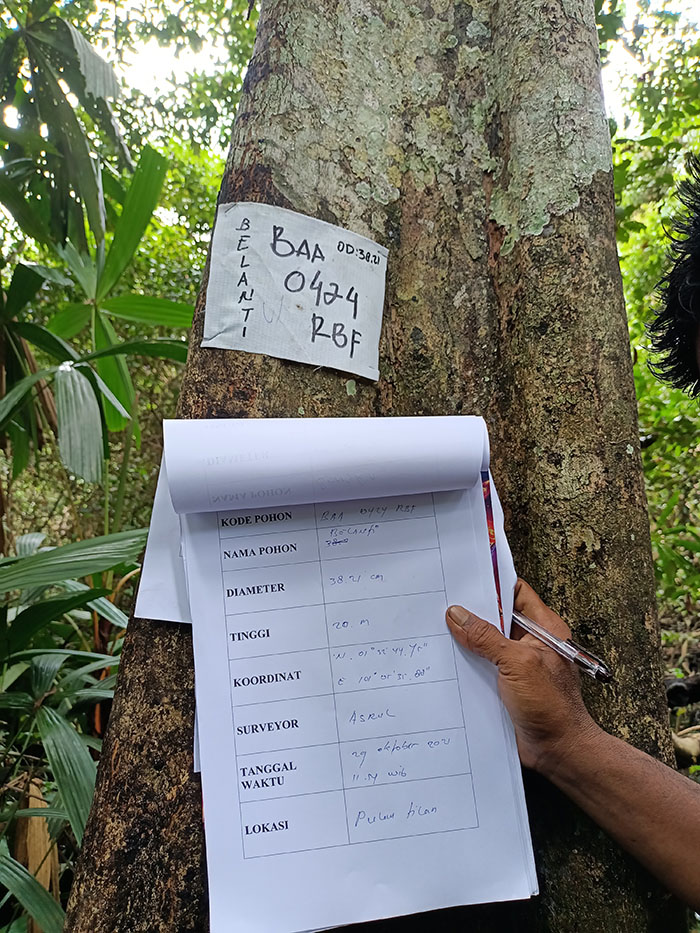 BELANTI
BAA OD:38.21
0424
RBF
KODE POHON BAA 0424 RBF
NAMA POHON Belanti
DIAMETER 38.21 cm
TINGGI 20 m
KOORDINAT N. 01°
E 101°
SURVEYOR ASRUL
TANGGAL WAKTU 29 oktober 2021
wib
LOKASI Pulau tilan